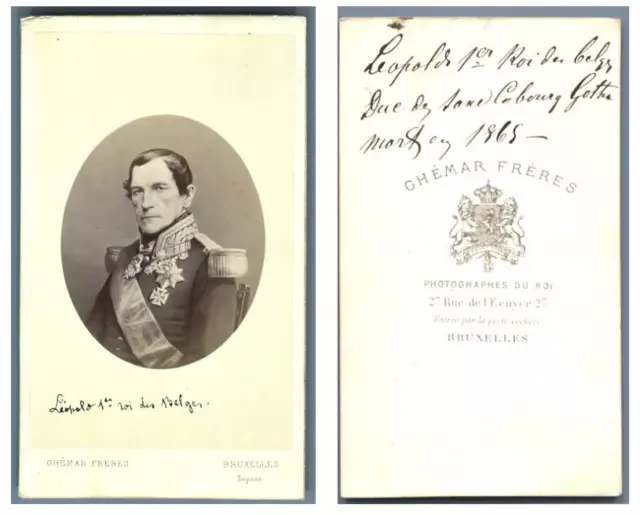 Léopold 1er roi des Belges.
GHÉMAR FRÈRES
BRUXELLES
Déposé.
Léopold 1er Roi des belges
Duc de Saxe Cobourg Gotha
mort en 1865 —
GHÉMAR FRÈRES
PHOTOGRAPHES DU ROI
27 Rue de l'Ecuyer 27
Entrée par la porte cochère
BRUXELLES